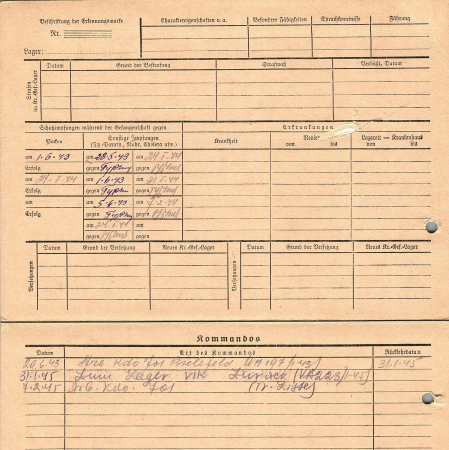 Beschriftung der Erkennungsmarke
Nr.
Lager:
Charaktereigenschaften u. a.
Besondere Fähigkeiten
Sprachkenntnisse
Führung
Strafen im Kr.-Gef.-Lager
Datum
Grund der Bestrafung
Strafmaß
Verbüßt, Datum
Schutzimpfungen während der Gefangenschaft gegen
Erkrankungen
Pocken
Sonstige Impfungen
(Ty.-Paratyph., Ruhr, Cholera usw.)
Krankheit
Revier
von bis
Lazarett — Krankenhaus
von bis
am 1.6.43 am 28.5.43 am 24.1.44
Erfolg gegen Typhus gegen
am am 1.6.43 am
Erfolg gegen Typhus gegen
am am 5.6.43 am
Erfolg gegen Typhus gegen
am am
gegen gegen
Versetzungen
Datum
Grund der Versetzung
Neues Kr.-Gef.-Lager
Versetzungen
Datum
Grund der Versetzung
Neues Kr.-Gef.-Lager
Kommandos
Datum
Art des Kommandos
Rückkehrdatum
20.6.43 Arb. Kdo 701 Bielefeld 31.1.45
31.1.45 Zum Lager VI K
7.2.45 Arb. Kdo. 701